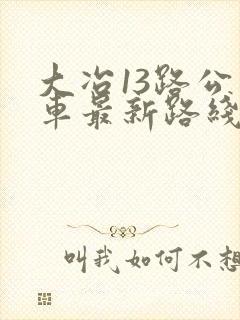 大冶13路公
車最新路綫
叫我如何不想